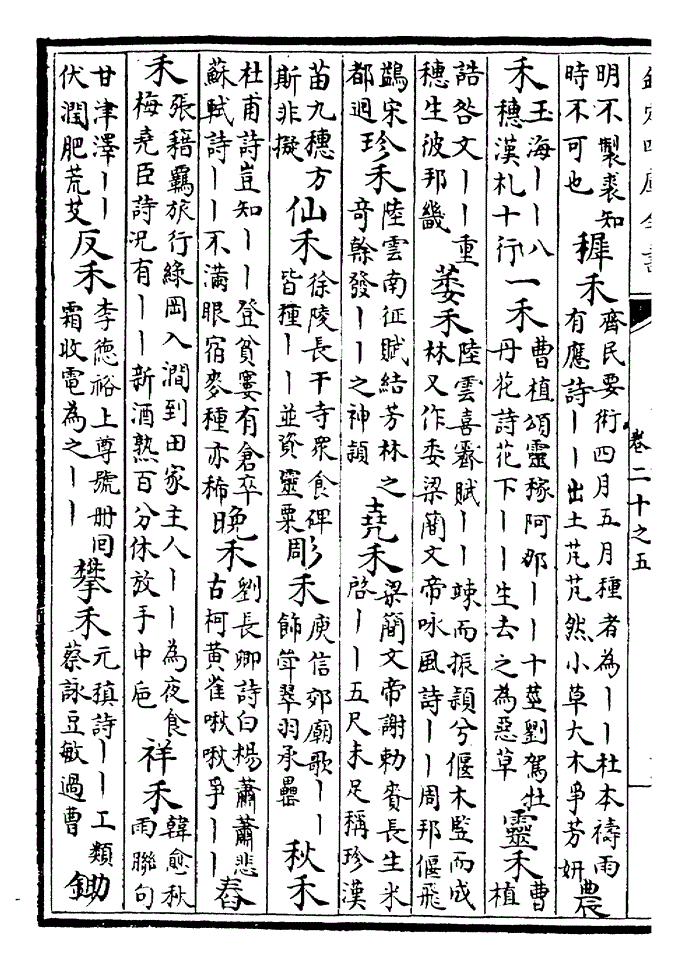 欽定四庫全書
卷二十之五
明不製裘知時不可也穉禾齊民要術四月五月種者為丨丨杜本禱雨有應詩丨丨出土芃芃然小草大木爭芳妍農
禾玉海丨丨八穗漢札十行一禾曹植頌靈稼阿那丨丨十莖劉駕牡丹花詩花下丨丨生去之為惡草靈禾曹植
誥咎文丨丨重穗生彼邦畿萎禾陸雲喜霽賦丨丨竦而振穎兮偃木豎而成林又作委梁簡文帝咏風詩丨丨周邦偃飛
鷁宋都迥珍禾陸雲南征賦結芳林之奇榦發丨丨之神穎堯禾梁簡文帝謝勅賚長生米啓丨丨五尺未足稱珍漢
苗九穗方斯非擬仙禾徐陵長干寺眾食碑皆種丨丨並資靈粟彫禾庾信郊廟歌丨丨飾斝翠羽承罍秋禾
杜甫詩豈知丨丨登貧窶有倉卒蘇軾詩丨丨不滿眼宿麥種亦稀晚禾劉長卿詩白楊蕭蕭悲古柯黃雀啾啾爭丨丨舂
禾張籍羈旅行緑岡入澗到田家主人丨丨為夜食梅堯臣詩況有丨丨新酒熟百分休放手中巵祥禾韓愈秋雨聯句
甘津澤丨丨伏潤肥荒艾反禾李德裕上尊號冊囘霜收電為之丨丨攀禾元稹詩丨丨工類蔡詠豆敏過曹鋤